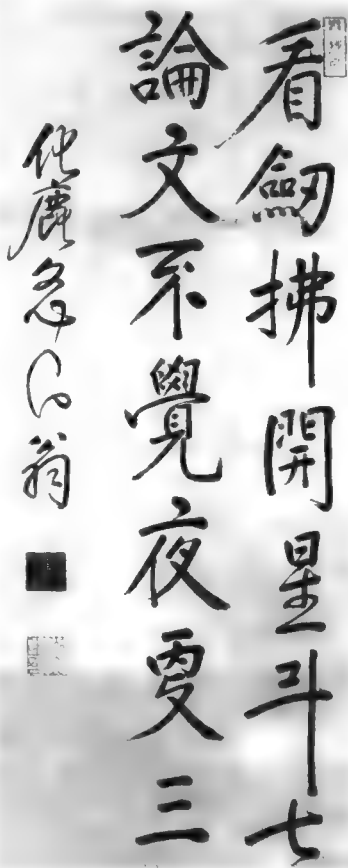 看劔拂開星斗七
論文不覺夜更三
化鹿
翁